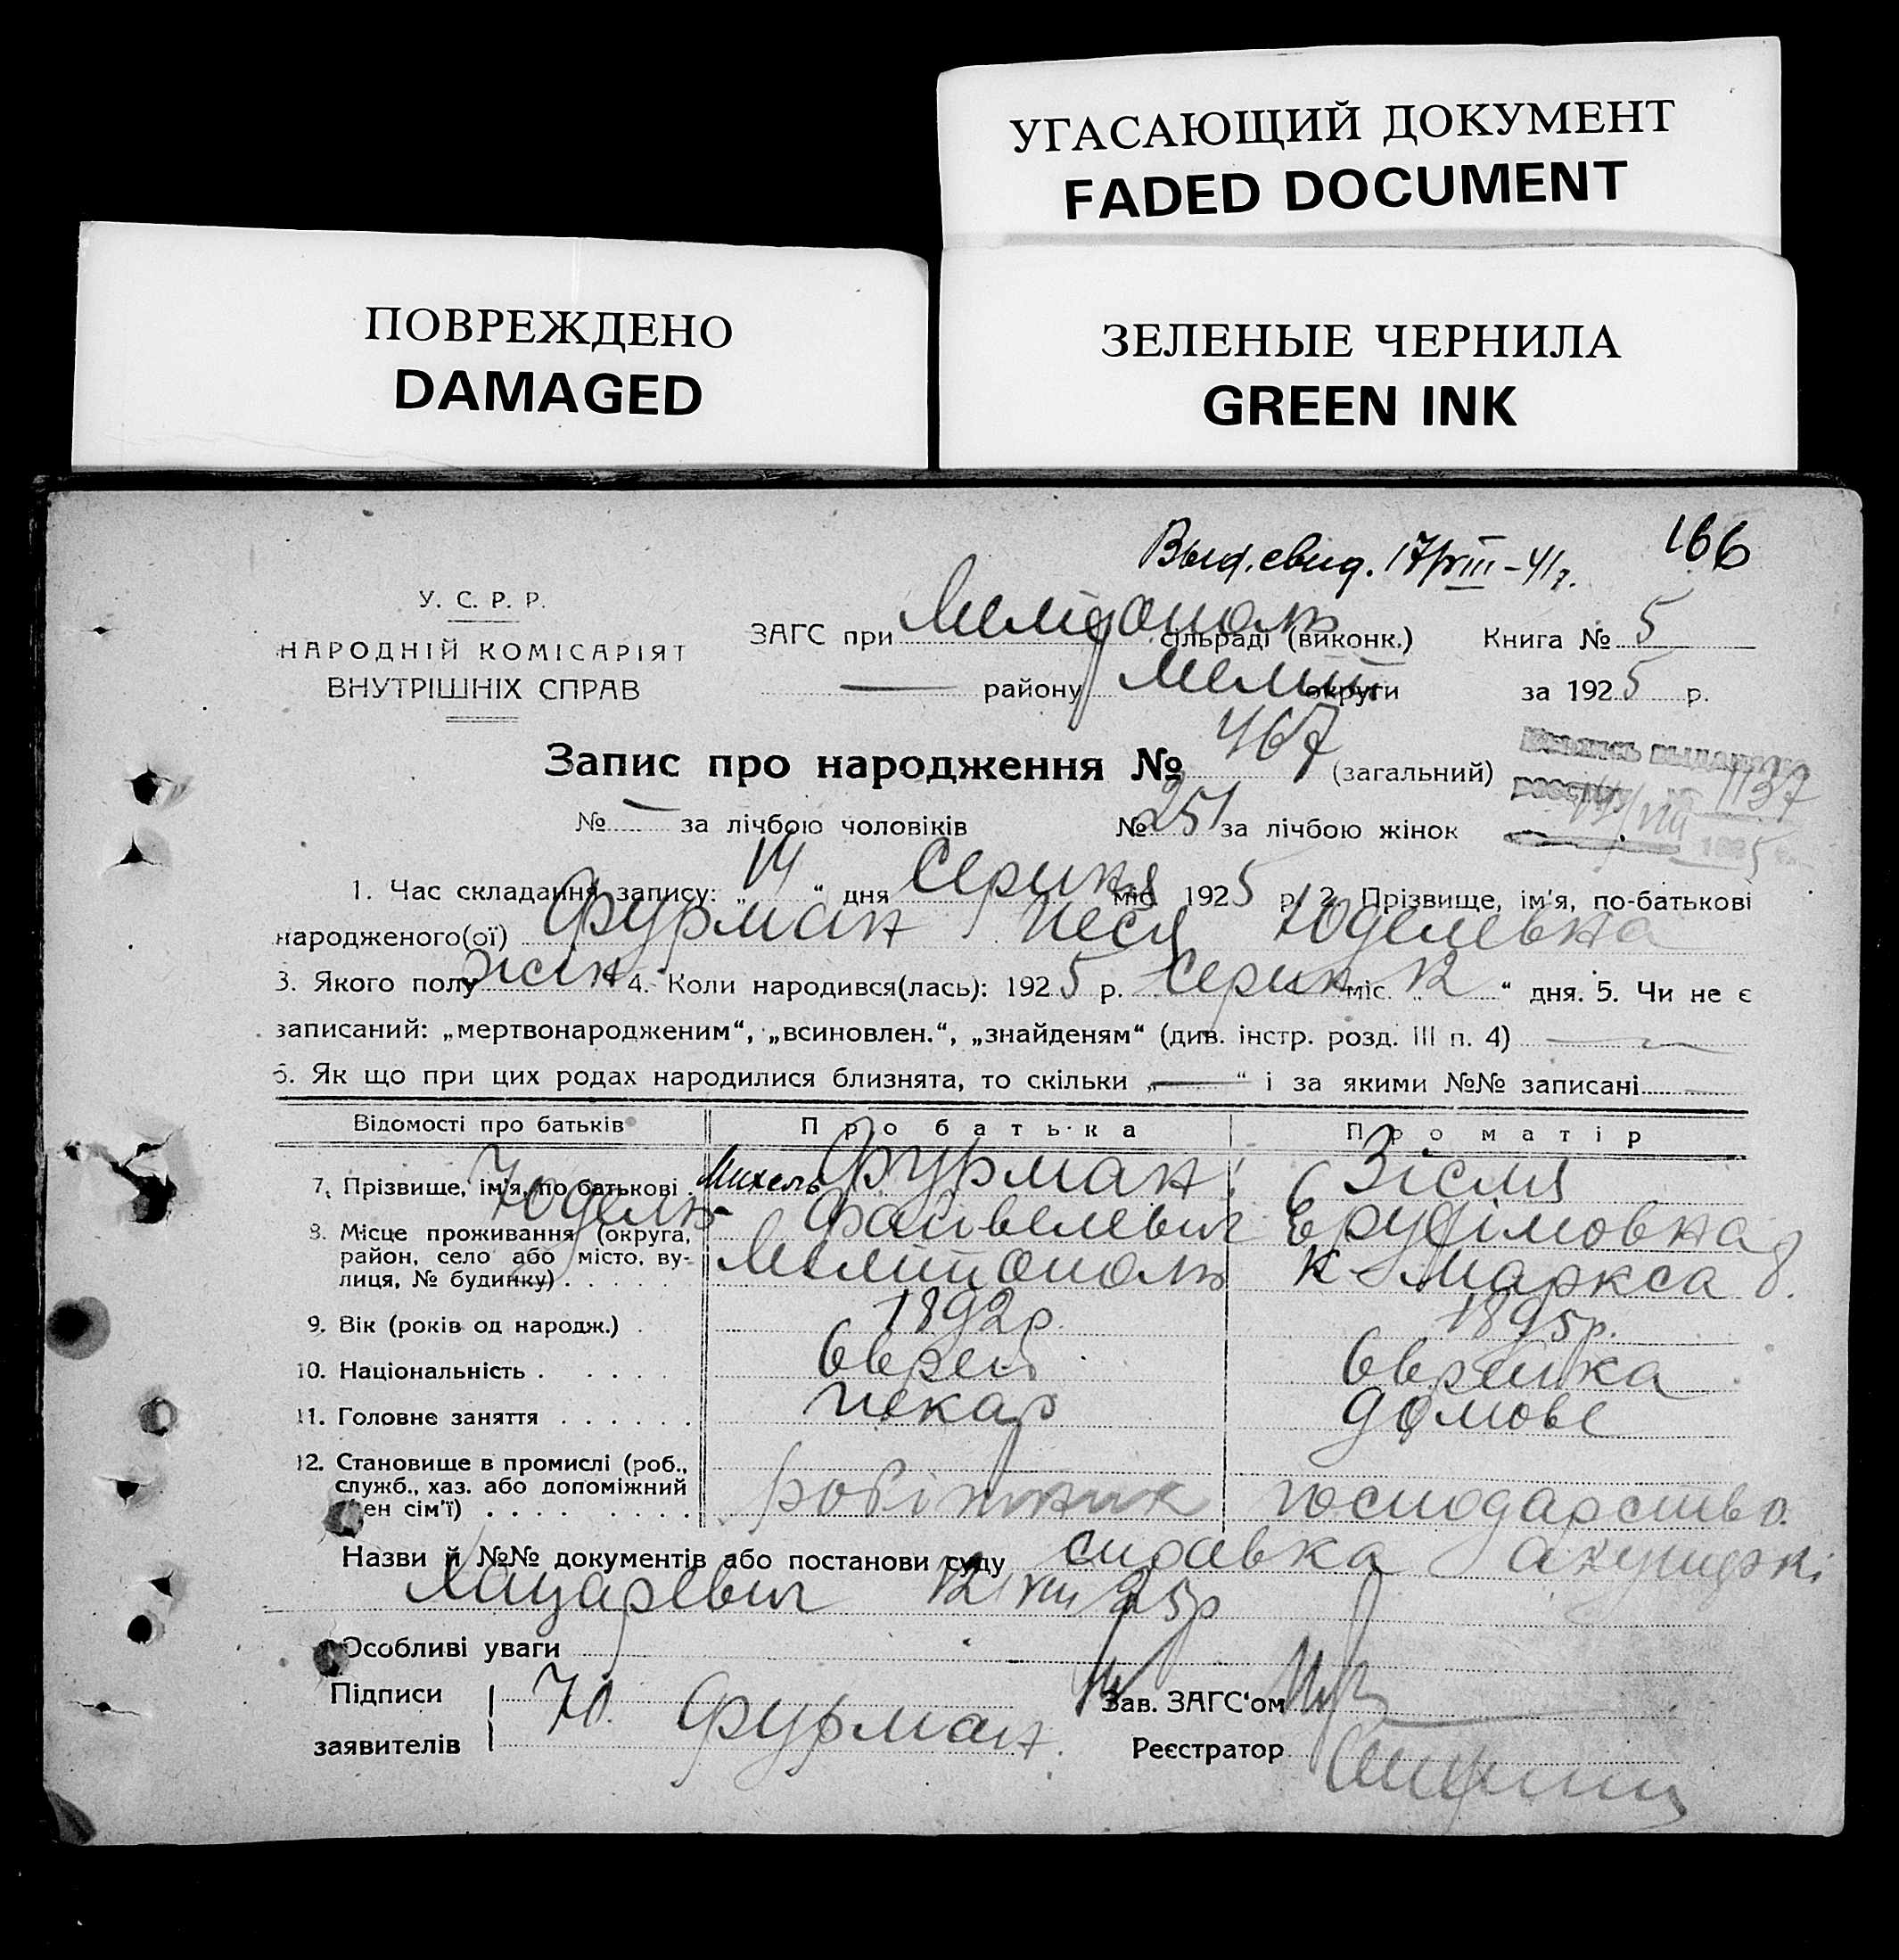 УГАСАЮЩИЙ ДОКУМЕНТ
FADED DOCUMENT
ПОВРЕЖДЕНО
DAMAGED
ЗЕЛЕНЫЕ ЧЕРНИЛА
GREEN INK
166
Выд. свид. 17/VIII-41г.
У. С. Р. Р.
НАРОДНІЙ КОМІСАРІЯТ
ВНУТРІШНІХ СПРАВ
ЗАГС при Мелітополь сільраді (виконк.) Книга № 5
— району Меліт округи за 1925 р.
Запис про народження № 467 (загальний)
№ — за лічбою чоловіків № 251 за лічбою жінок
1137
1. Час складання запису: „ 14 “ дня Серпня міс. 1925 р. 2. Прізвище, ім'я, по-батькові
народженого(ої) Фурман Песя Юделевна
3. Якого полу жін 4. Коли народився(лась): 1925 р. Серпн міс. „ 12 “ дня. 5. Чи не є
записаний: „мертвонародженим“, „всиновлен.“, „знайденям“ (див. інстр. розд. III п. 4) —
6. Як що при цих родах народилися близнята, то скільки „—“ і за якими №№ записані —
Відомості про батьків Про батька Про матір
7. Прізвище, ім'я, по батькові Михель Фурман Зісля
Юдель Файвелевич
8. Місце проживання (округа, район, село або місто, вулиця, № будинку) Мелітополь К-Маркса 8.
9. Вік (років од народж.) 1892р. 1895р.
10. Національність Єврей Єврейка
11. Головне заняття пекар домове
12. Становище в промислі (роб., служб., хаз. або допоміжний
ен сім'ї) робітник господарство.
Назви й №№ документів або постанови суду справка акушерки
12/VIII 25р
Особливі уваги
Підписи Ю. Фурман. Зав. ЗАГС'ом
заявителів Реєстратор